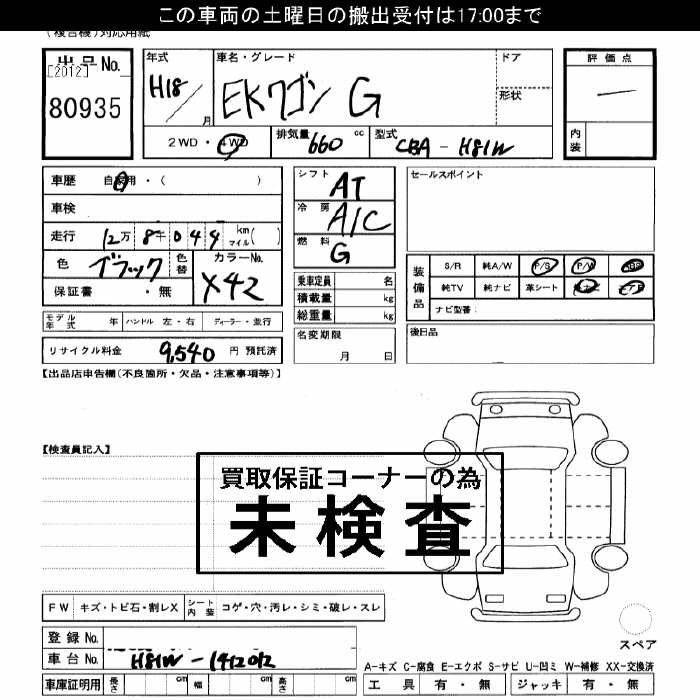 この車両の土曜日の搬出受付は17:00まで
(複合機)対応用紙
出品No.
[2012]
80935
年式
H18
月
車名・グレード
EKワゴン G
ドア
形状
評価点
内装
2WD・4WD
排気量 660 cc
型式 CBA - H81W
車歴 自家用・( )
車検
走行 12万 8千 0 4 4 km マイル( )
色 ブラック
色替
カラーNo.
X42
保証書 ・ 無
シフト AT
冷房 A/C
燃料 G
乗車定員 名
積載量 kg
総重量 kg
名変期限
月 日
セールスポイント
装備品
S/R 純A/W P/S P/W ABS
純TV 純ナビ 革シート
ナビ型番:
後日品
モデル年式 年
ハンドル 左・右
ディーラー・並行
リサイクル料金 9,540 円 預託済
【出品店申告欄(不良箇所・欠品・注意事項等)】
【検査員記入】
買取保証コーナーの為
未検査
FW キズ・トビ石・割レX
シート内装 コゲ・穴・汚レ・シミ・破レ・スレ
登録No.
車台No. H81W-1412012
車庫証明用 長さ cm 幅 cm 高さ cm
スペア
A-キズ C-腐食 E-エクボ S-サビ U-凹ミ W-補修 XX-交換済
工具 有・無 ジャッキ 有・無